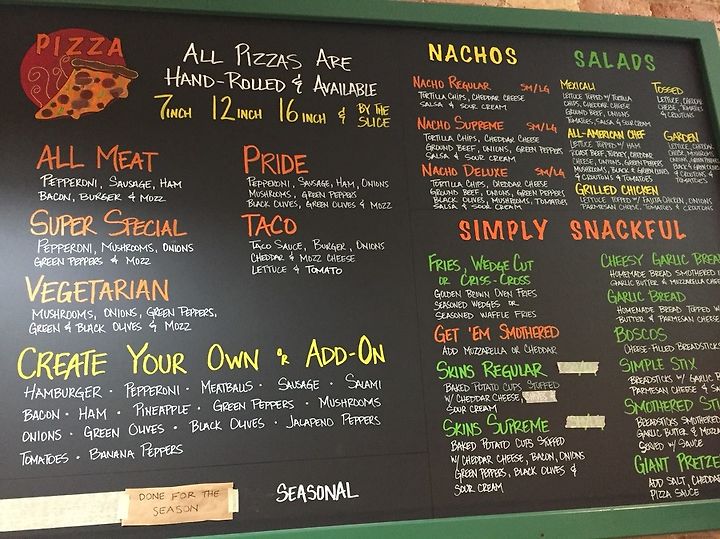 PIZZA
ALL PIZZAS ARE
HAND-ROLLED & AVAILABLE
7INCH 12INCH 16INCH & BY THE SLICE
ALL MEAT
PEPPERONI, SAUSAGE, HAM
BACON, BURGER & MOZZ
SUPER SPECIAL
PEPPERONI, MUSHROOMS, ONIONS
GREEN PEPPERS & MOZZ
VEGETARIAN
MUSHROOMS, ONIONS, GREEN PEPPERS,
GREEN & BLACK OLIVES & MOZZ
PRIDE
PEPPERONI, SAUSAGE, HAM, ONIONS
MUSHROOMS, GREEN PEPPERS
BLACK OLIVES, GREEN OLIVES & MOZZ
TACO
TACO SAUCE, BURGER, ONIONS
CHEDDAR & MOZZ CHEESE
LETTUCE & TOMATO
CREATE YOUR OWN OR ADD-ON
HAMBURGER · PEPPERONI · MEATBALLS · SAUSAGE · SALAMI
BACON · HAM · PINEAPPLE · GREEN PEPPERS · MUSHROOMS
ONIONS · GREEN OLIVES · BLACK OLIVES · JALAPENO PEPPERS
TOMATOES · BANANA PEPPERS
DONE FOR THE
SEASON
SEASONAL
NACHOS
NACHO REGULAR SM/LG
TORTILLA CHIPS, CHEDDAR CHEESE
SALSA & SOUR CREAM
NACHO SUPREME SM/LG
TORTILLA CHIPS, CHEDDAR CHEESE
GROUND BEEF, ONIONS, GREEN PEPPERS
SALSA & SOUR CREAM
NACHO DELUXE SM/LG
TORTILLA CHIPS, CHEDDAR CHEESE
GROUND BEEF, ONIONS, GREEN PEPPERS
BLACK OLIVES, MUSHROOMS, TOMATOES
SALSA & SOUR CREAM
SALADS
MEXICALI
LETTUCE TOPPED W/ TORTILLA
CHIPS, CHEDDAR CHEESE,
GROUND BEEF, ONIONS,
TOMATOES, SALSA & SOUR CREAM
ALL-AMERICAN CHEF
LETTUCE TOPPED W/ HAM
ROAST BEEF, TURKEY, CHEDDAR
CHEESE, ONIONS, GREEN PEPPERS
MUSHROOMS, BLACK & GREEN OLIVES
& CROUTONS & TOMATOES
GRILLED CHICKEN
LETTUCE TOPPED W/ FAJITA CHICKEN, ONIONS
PARMESAN CHEESE, TOMATOES & CROUTONS
TOSSED
LETTUCE, CHEDDAR
CHEESE, TOMATOES
& CROUTONS
GARDEN
LETTUCE, CHEDDAR
CHEESE, MUSHROOMS
ONIONS, GREEN PEPPERS
BLACK & GREEN OLIVES
& CROUTONS &
TOMATOES
SIMPLY SNACKFUL
FRIES, WEDGE CUT
OR CRISS-CROSS
GOLDEN BROWN OVEN FRIES
SEASONED WEDGES OR
SEASONED WAFFLE FRIES
GET 'EM SMOTHERED
ADD MOZZARELLA OR CHEDDAR
SKINS REGULAR
BAKED POTATO CUPS STUFFED
W/ CHEDDAR CHEESE,
SOUR CREAM
SKINS SUPREME
BAKED POTATO CUPS STUFFED
W/ CHEDDAR CHEESE, BACON, ONIONS
GREEN PEPPERS, BLACK OLIVES &
SOUR CREAM
CHEESY GARLIC BREA
HOMEMADE BREAD SMOTHERED IN
GARLIC BUTTER & MOZZARELLA CHEE
GARLIC BREAD
HOMEMADE BREAD TOPPED W/
BUTTER & PARMESAN CHEESE
BOSCOS
CHEESE-FILLED BREADSTICKS
SIMPLE STIX
BREADSTICKS W/ GARLIC B
PARMESAN CHEESE & SA
SMOTHERED STI
BREADSTICKS SMOTHERED
GARLIC BUTTER & MOZZA
SERVED W/ SAUCE
GIANT PRETZE
ADD SALT, CHEDDAR
PIZZA SAUCE